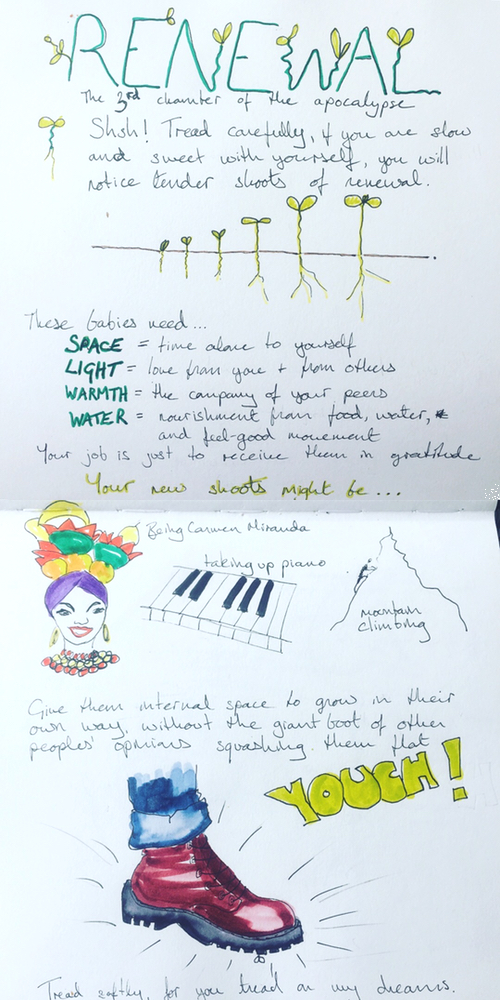 RENEWAL
The 3rd chamber of the apocalypse
Shsh! Tread carefully, if you are slow
and sweet with yourself, you will
notice tender shoots of renewal.
These babies need...
SPACE = time alone to yourself
LIGHT = love from you + from others
WARMTH = the company of your peers
WATER = nourishment from food, water,
and feel-good movement
Your job is just to receive them in gratitude
Your new shoots might be...
Being Carmen Miranda
taking up piano
mountain
climbing
Give them internal space to grow in their
own way, without the giant boot of other
peoples' opinions squashing them flat
YOUCH!
Tread softly, for you tread on my dreams.